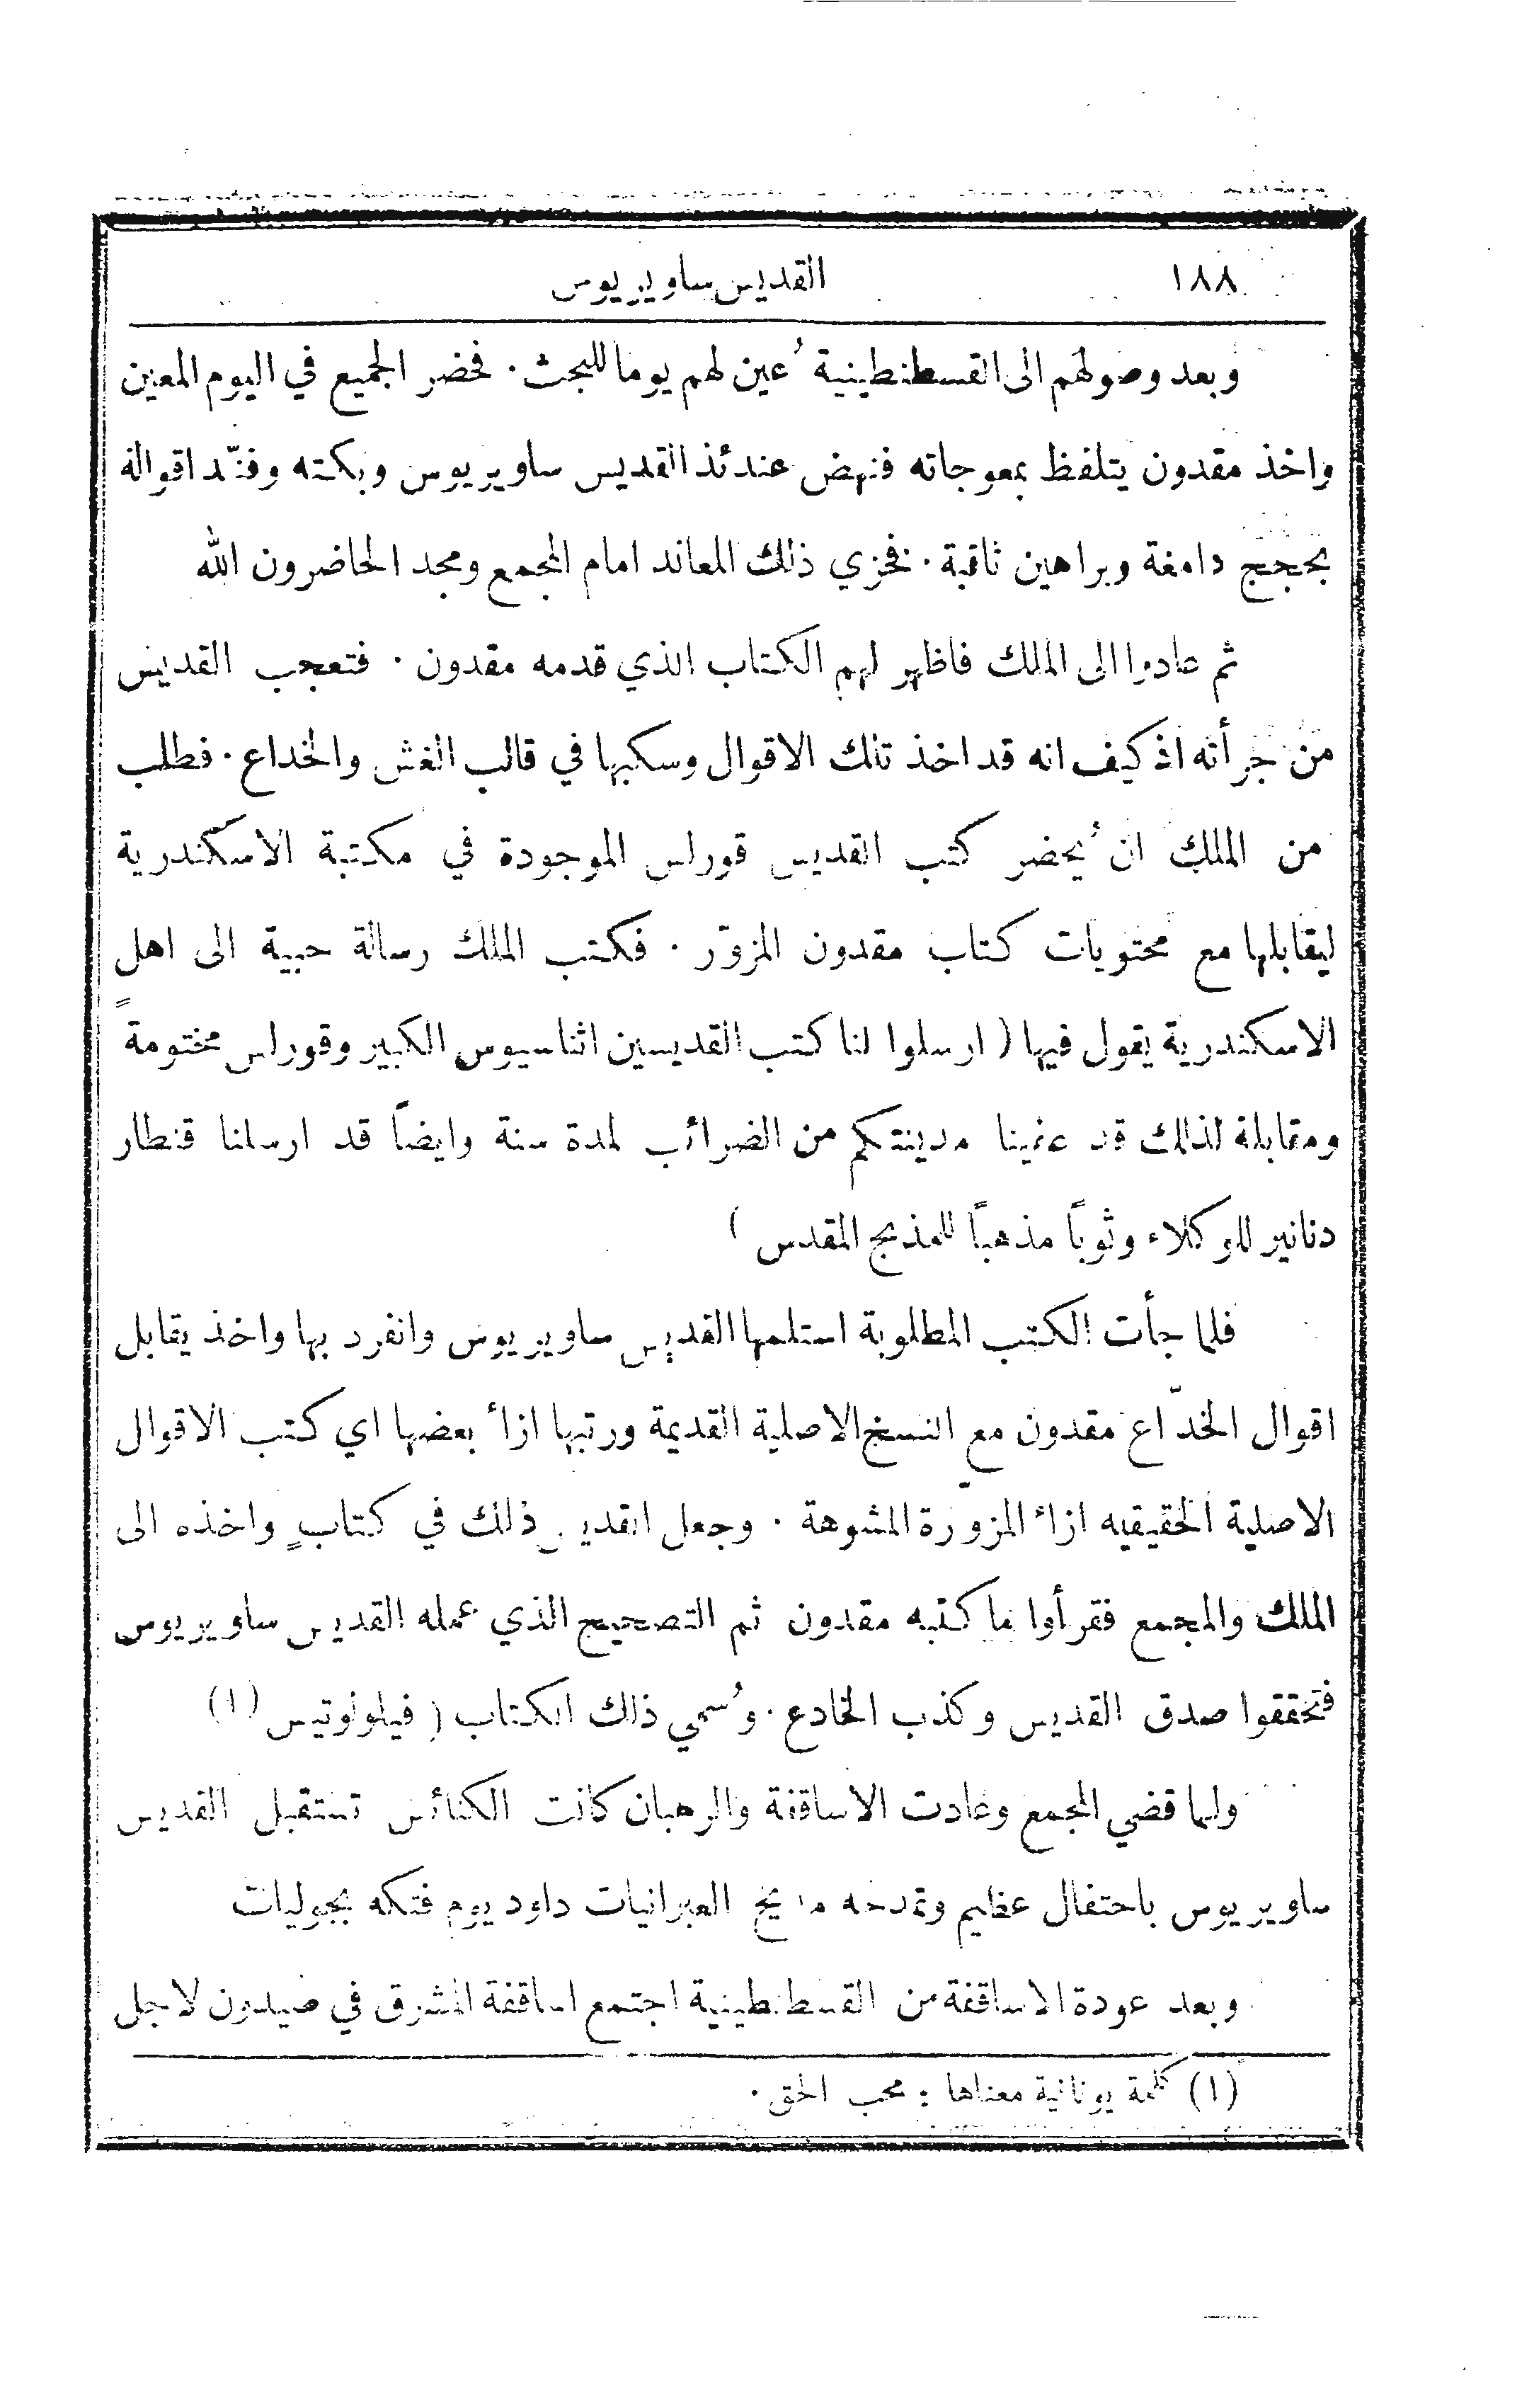 ١٨٨ القديس ساويريوس
وبعد وصولهم الى القسطنطينية عُين لهم يوما للبحث. فحضر الجميع في اليوم المعين
واخذ مقدون يتلفظ بمعوجاته فنهض عندئذ القديس ساويريوس وبكته وفنّد اقواله
بحجج دامغة وبراهين ثاقبة. فخزي ذلك المعاند امام المجمع ومجد الحاضرون الله
ثم عادوا الى الملك فاظهر لهم الكتاب الذي قدمه مقدون. فتعجب القديس
من جرأته اذ كيف انه قد اخذ تلك الاقوال وسكبها في قالب الغش والخداع. فطلب
من الملك ان يُحضر كتب القديس قورلس الموجودة في مكتبة الاسكندرية
ليقابلها مع محتويات كتاب مقدون المزوّر. فكتب الملك رسالة حبية الى اهل
الاسكندرية يقول فيها ( ارسلوا لنا كتب القديسين اثناسيوس الكبير وقورلس مختومةً
ومقابلة لذلك قد عفينا مدينتكم من الضرائب لمدة سنة وايضاً قد ارسلنا قنطار
دنانير للوكلاء وثوباً مذهباً للمذبح المقدس )
فلما جأت الكتب المطلوبة استلمها القديس ساويريوس وانفرد بها واخذ يقابل
اقوال الخدّاع مقدون مع النسخ الاصلية القديمة ورتبها ازأ بعضها اي كتب الاقوال
الاصلية الحقيقيه ازأ المزوّرة المشوهة. وجعل القديس ذلك في كتابٍ واخذه الى
الملك والمجمع فقرأوا ما كتبه مقدون ثم التصحيح الذي عمله القديس ساويريوس
فتحققوا صدق القديس وكذب الخادع. وسُمي ذلك الكتاب ( فيلولوتيس (١)
ولما قضي المجمع وعادت الاساقفة والرهبان كانت الكنائس تستقبل القديس
ساويريوس باحتفال عظيم وتمدحه مديح العبرانيات داود يوم فتكه بجوليات
وبعد عودة الاساقفة من القسطنطينية اجتمع اساقفة المشرق في صيدون لاجل
(١) كلمة يونانية معناها : محب الحق.